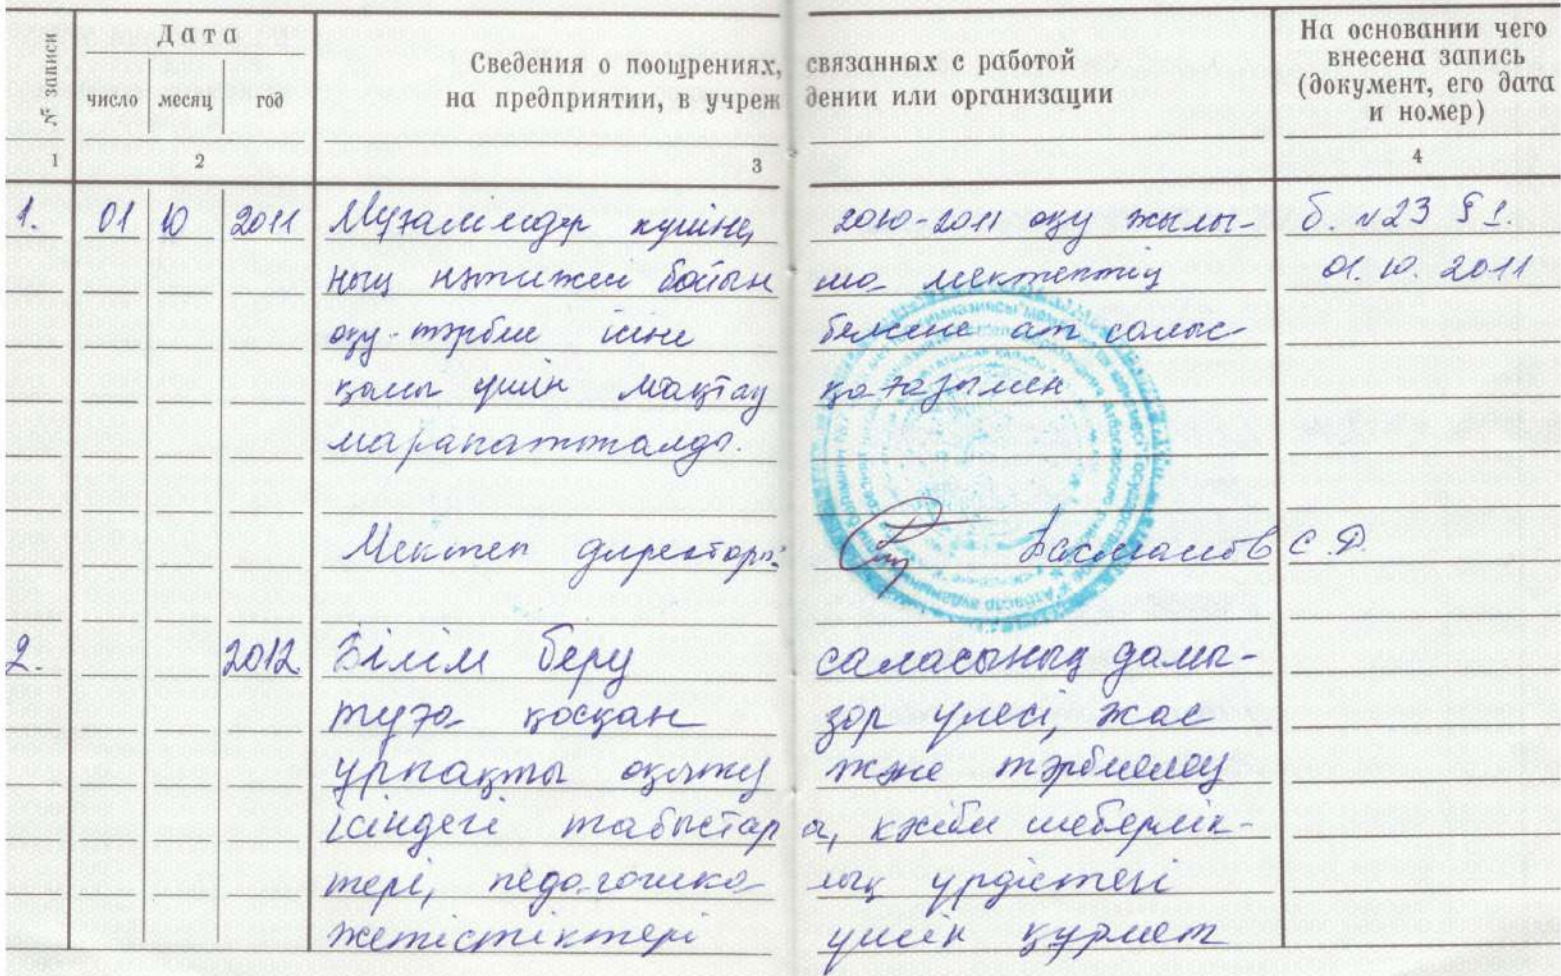 № записи
Дата
Сведения о поощрениях, связанных с работой
на предприятии, в учреждении или организации
На основании чего
внесена запись
(документ, его дата
и номер)
число месяц год
1 2 3 4
1. 01 10 2011 Мұғалімдер күніне, 2010-2011 оқу жылы- б. №23 § 1.
ның нәтижесі бойын ша мектептің 01.10.2011
оқу-тәрбие ісіне белсене ат салыс-
қаны үшін мақтау қағазымен
марапатталды.
Мектеп директоры: С.Д.
2. 2012 Білім беру саласының дамы-
туға қосқан зор үлесі, жас
ұрпақты оқыту және тәрбиелеу
ісіндегі табыстар а, кәсіби шеберлік-
тері, педагогика лық үрдістегі
жетістіктері үшін құрмет